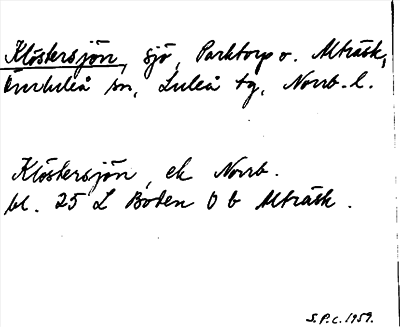 Klöstersjön, sjö, Parktorp o. Alträsk,
Överluleå sn, Luleå tg, Norrb. l.
Klöstersjön, ek Norrb.
bl. 25 L Boden 0 b Alträsk.
S.P.c. 1959.